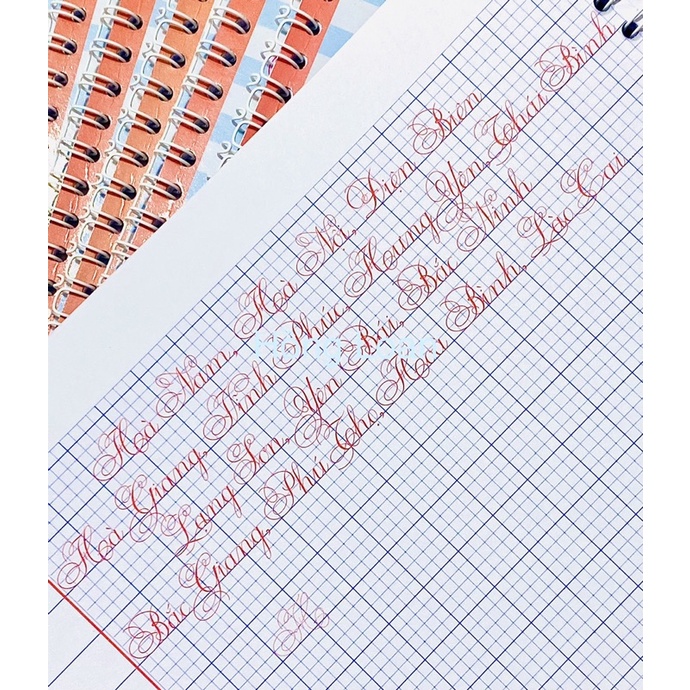 Hà Nam, Hà Nội, Điện Biên
Hà Giang, Vĩnh Phúc, Hưng Yên, Thái Bình
Lạng Sơn, Yên Bái, Bắc Ninh
Bắc Giang, Phú Thọ, Hoà Bình, Lào Cai
H